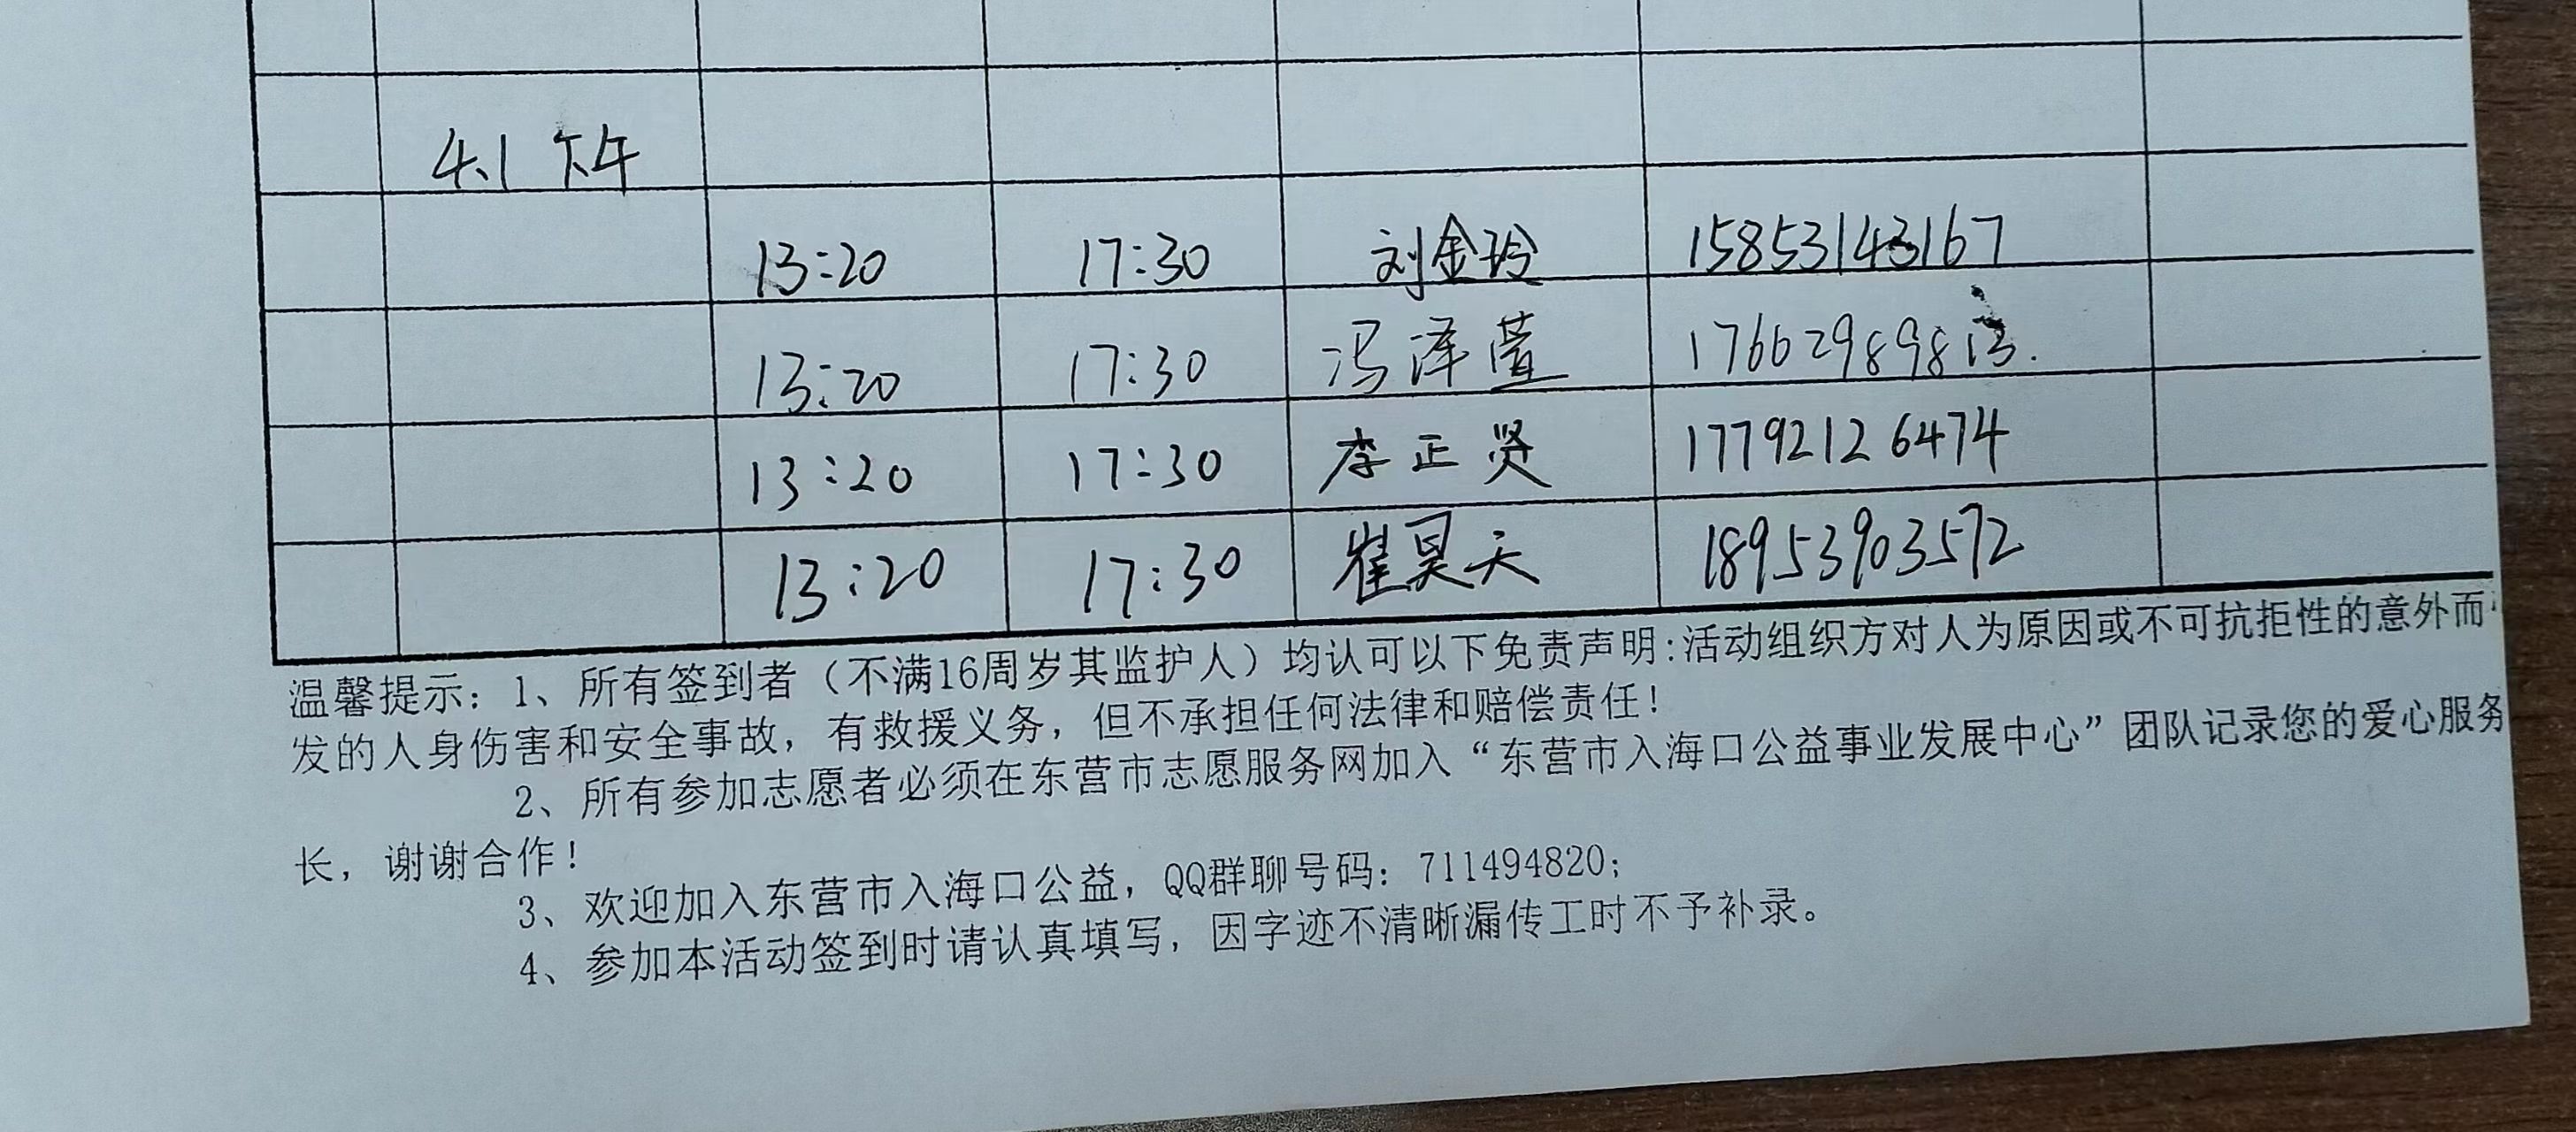 4.1 下午
13:20 17:30 刘金玲 15853143167
13:20 17:30 冯泽萱
13:20 17:30 李正贤 17792126474
13:20 17:30 崔昊天 18953903572
温馨提示：1、所有签到者（不满16周岁其监护人）均认可以下免责声明:活动组织方对人为原因或不可抗拒性的意外而
发的人身伤害和安全事故，有救援义务，但不承担任何法律和赔偿责任！
2、所有参加志愿者必须在东营市志愿服务网加入“东营市入海口公益事业发展中心”团队记录您的爱心服务
长，谢谢合作！
3、欢迎加入东营市入海口公益，QQ群聊号码：711494820；
4、参加本活动签到时请认真填写，因字迹不清晰漏传工时不予补录。